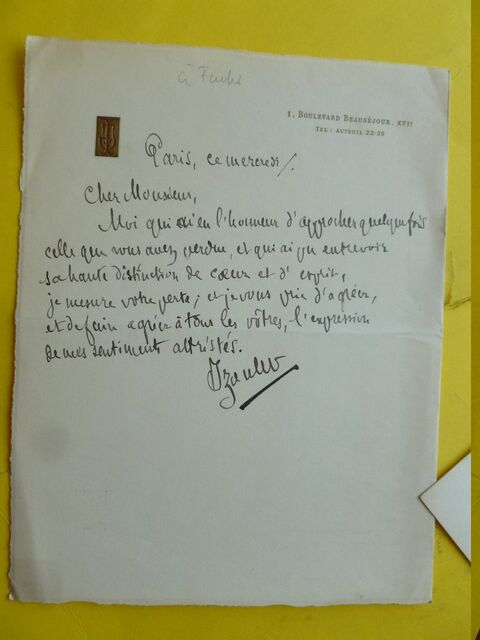 à Fuchs
1, BOULEVARD BEAUSÉJOUR. XVIe
TEL : AUTEUIL 22-29
Paris, ce mercredi
Cher Monsieur,
Moi qui ai eu l'honneur d'approcher quelquefois
celle que vous avez perdue, et qui ai pu entrevoir
sa haute distinction de cœur et d'esprit,
je mesure votre perte ; et je vous prie d'agréer,
et de faire agréer à tous les vôtres, l'expression
de mes sentiments attristés.
Izoulet